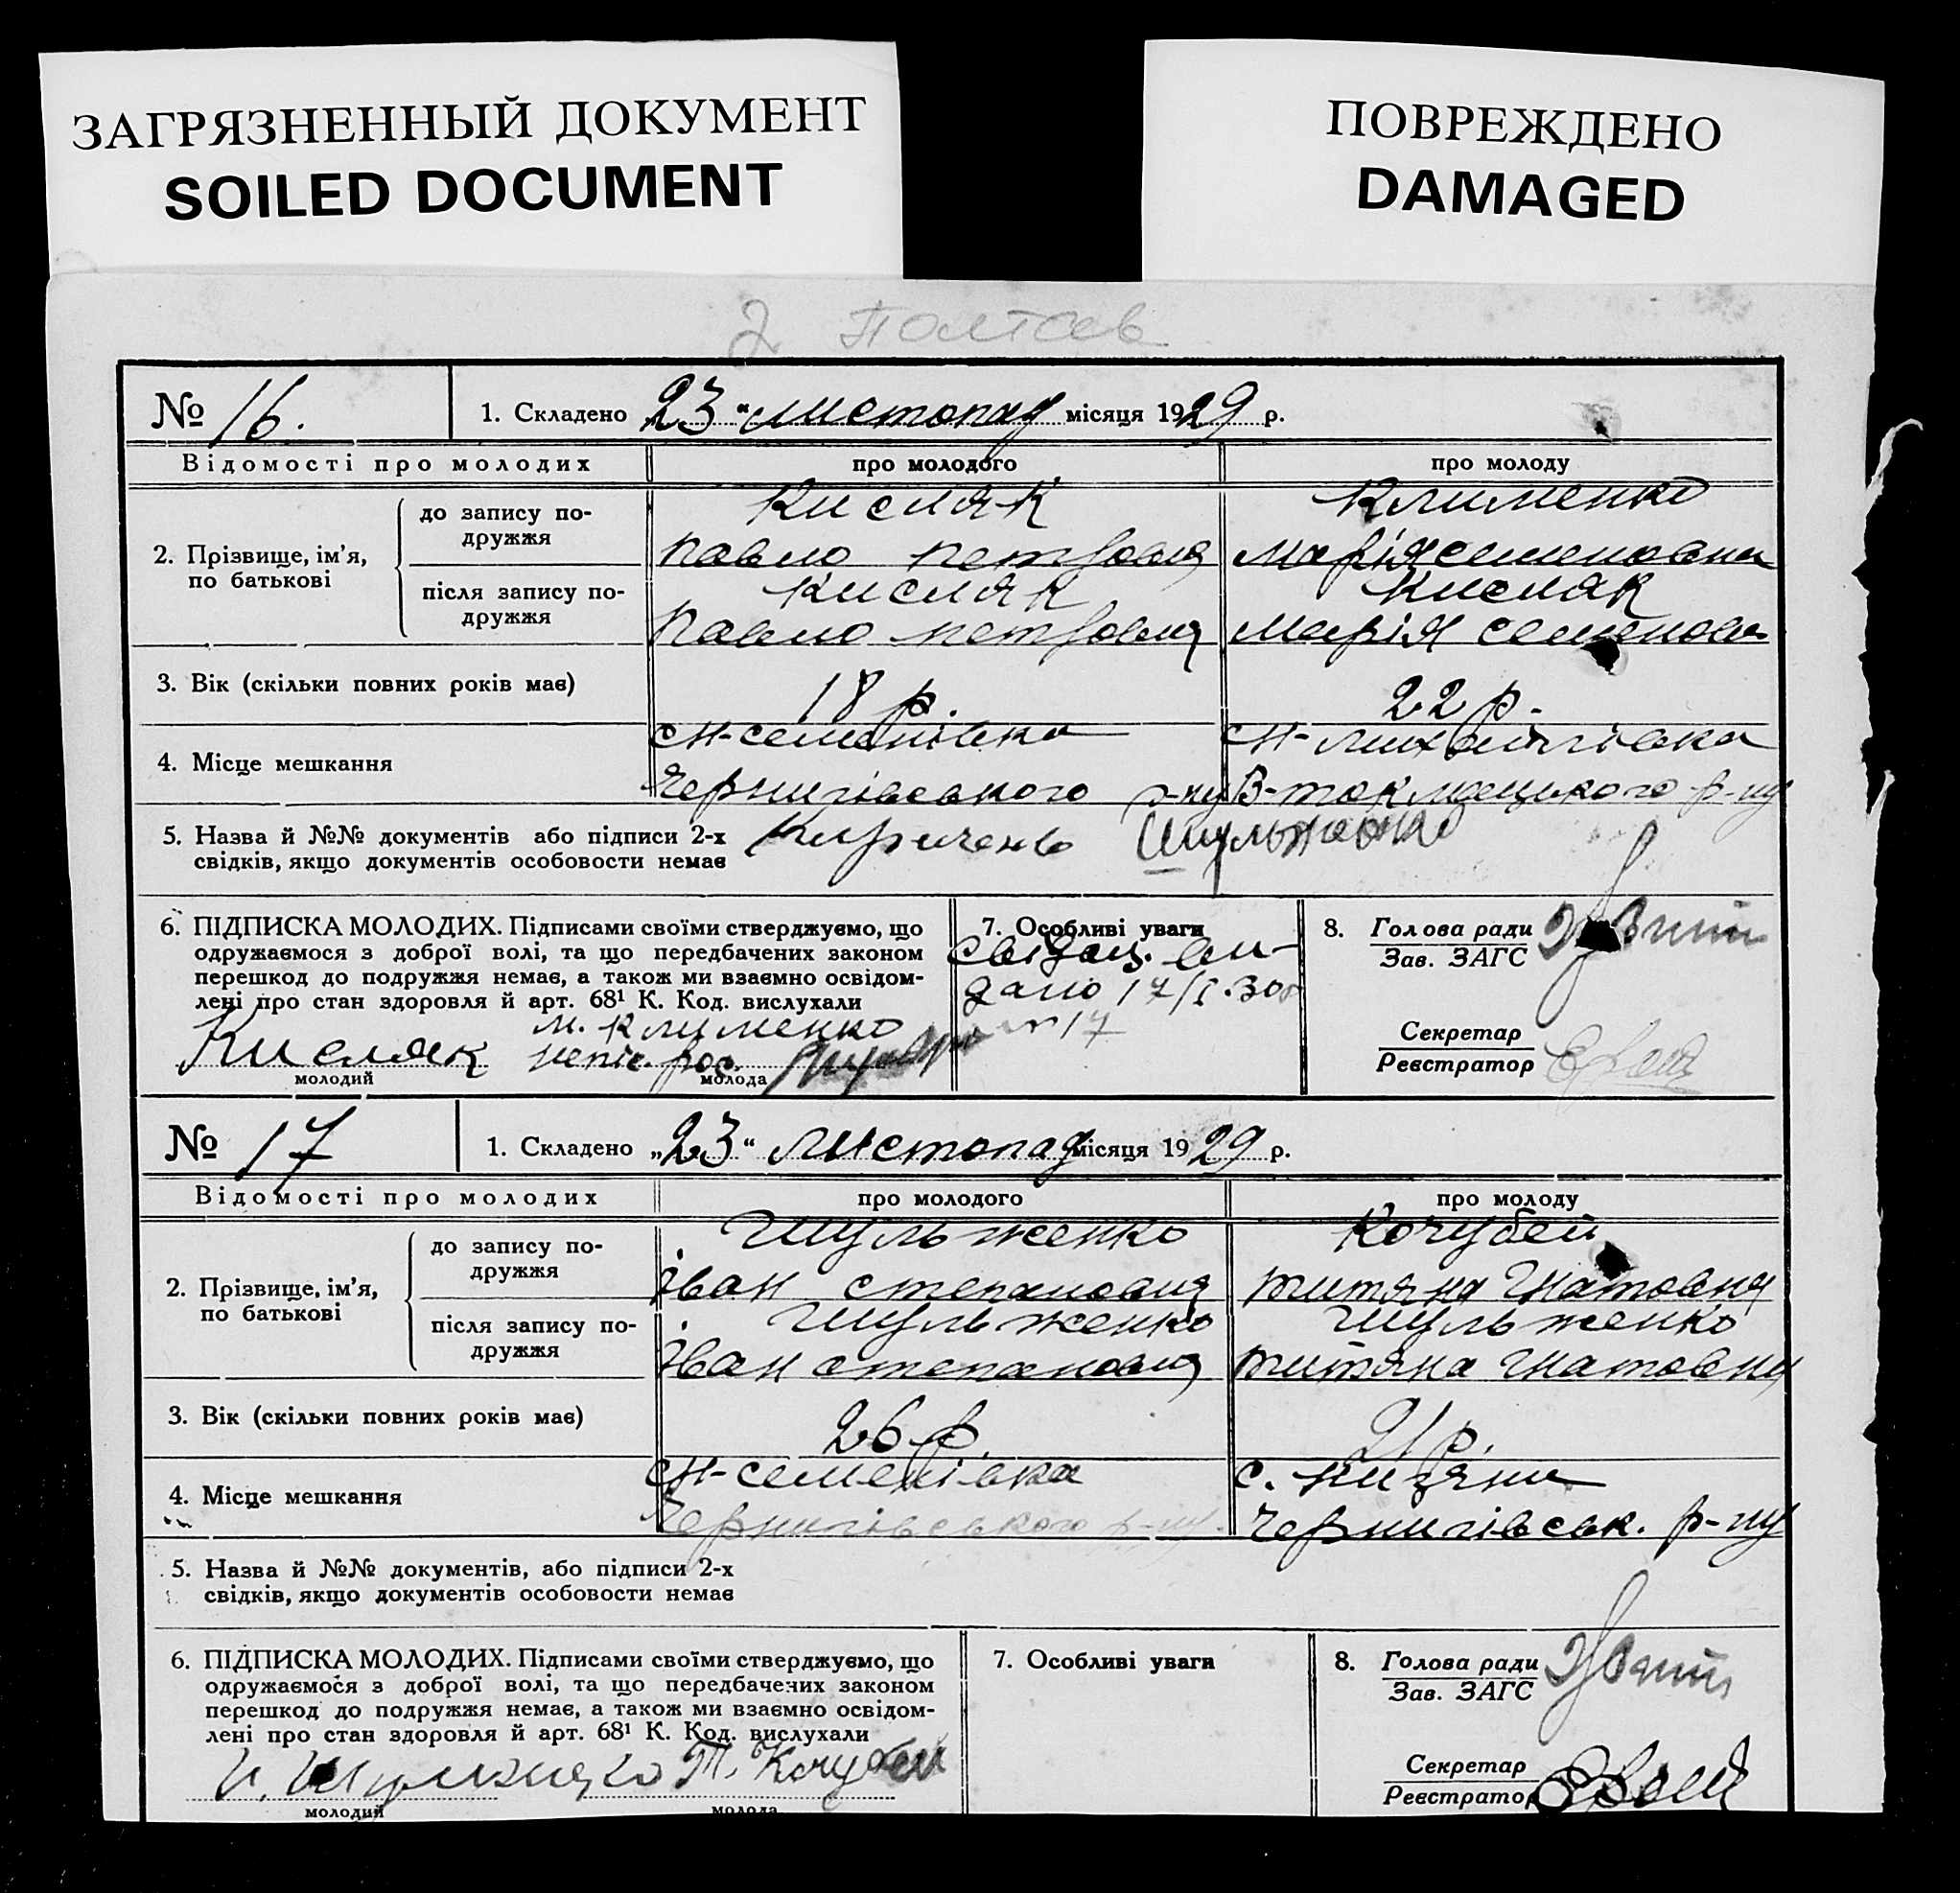 ЗАГРЯЗНЕННЫЙ ДОКУМЕНТ
SOILED DOCUMENT
ПОВРЕЖДЕНО
DAMAGED
№ 16. 1. Складено 23 " листопад місяця 1929 р.
Відомості про молодих про молодого про молоду
2. Прізвище, ім'я, по батькові
до запису по-
дружжя
Кисляк Клименко
Павло Петрович Марія Семеновна
після запису по-
дружжя
Кисляк Кисляк
Павло Петрович Марія
3. Вік (скільки повних років має) 18 р. 22 р.
4. Місце мешкання
Чернигівського р-ну В-Токмацького р-ну
5. Назва й №№ документів або підписи 2-х
свідків, якщо документів особовости немає
Шульженко
6. ПІДПИСКА МОЛОДИХ. Підписами своїми стверджуємо, що
одружаємося з доброї волі, та що передбачених законом
перешкод до подружжя немає, а також ми взаємно освідом-
лені про стан здоровля й арт. 68¹ К. Код. вислухали
Кисляк м. Клименко
молодий молода
7. Особливі уваги
свідоц. ви-
дано 17/I.30р
№ 17
8. Голова ради
Зав. ЗАГС
Секретар
Реєстратор
№ 17 1. Складено „23" листопад місяця 1929 р.
Відомості про молодих про молодого про молоду
2. Прізвище, ім'я, по батькові
до запису по-
дружжя
Шульженко Кочубей
Іван Степанович Титяна Гнатовна
після запису по-
дружжя
Шульженко Шульженко
Іван Степанович Титяна Гнатовна
3. Вік (скільки повних років має) 26 р. 21 р.
4. Місце мешкання
сн-Семенівка с. Низяни
Чернигівського р-ну. Чернигівськ. р-ну
5. Назва й №№ документів, або підписи 2-х
свідків, якщо документів особовости немає
6. ПІДПИСКА МОЛОДИХ. Підписами своїми стверджуємо, що
одружаємося з доброї волі, та що передбачених законом
перешкод до подружжя немає, а також ми взаємно освідом-
лені про стан здоровля й арт. 68¹ К. Код. вислухали
Т. Кочубей
молодий молода
7. Особливі уваги
8. Голова ради
Зав. ЗАГС
Секретар
Реєстратор